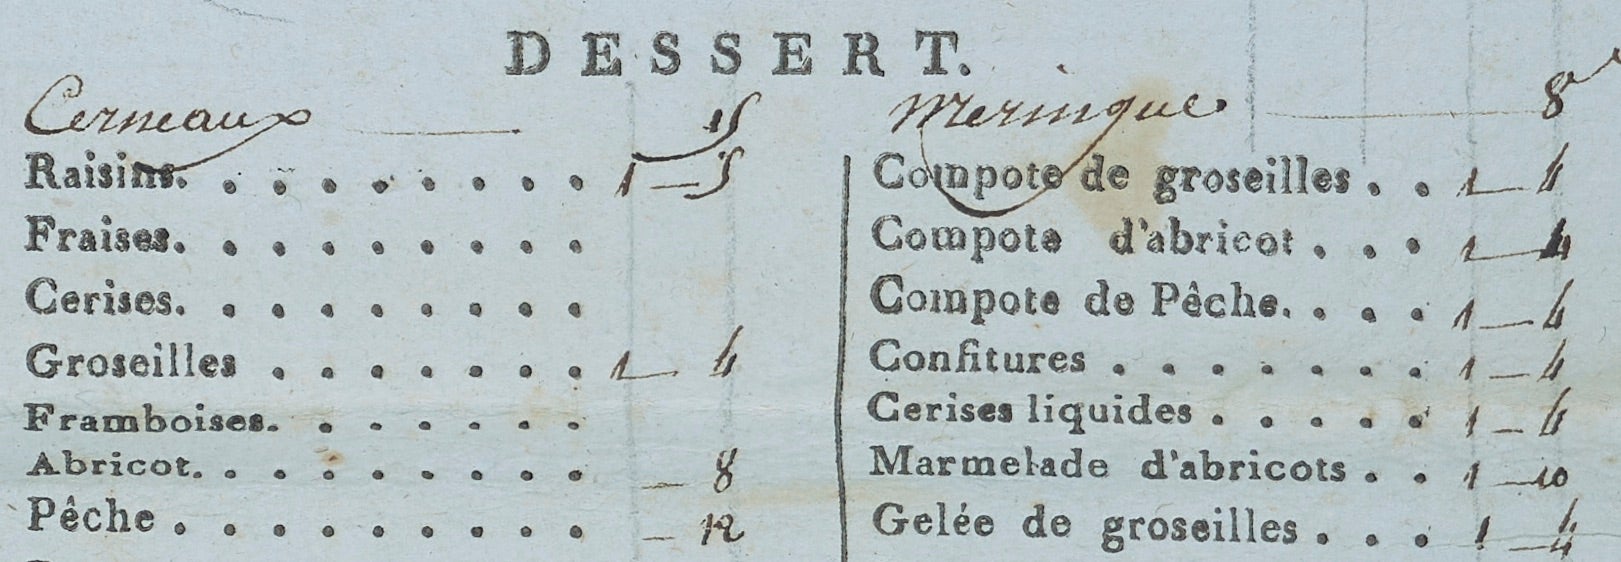 DESSERT.
Cerneaux 15
Raisins. . . . . . . . . 1 — 5
Fraises. . . . . . . . .
Cerises. . . . . . . . .
Groseilles . . . . . . . 1 — 4
Framboises. . . . . . .
Abricot. . . . . . . . . — 8
Pêche . . . . . . . . . — 12
Meringue 8
Compote de groseilles . . 1 — 4
Compote d'abricot . . . 1 — 4
Compote de Pêche. . . . 1 — 4
Confitures . . . . . . . 1 — 4
Cerises liquides . . . . . 1 — 4
Marmelade d'abricots . . 1 — 10
Gelée de groseilles . . . 1 — 4